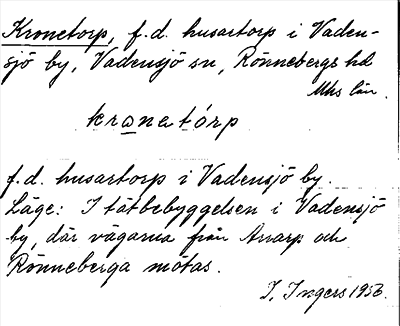 Kronetorp, f.d. husartorp i Vaden-
sjö by, Vadensjö sn, Rönnebergs hd
Mhs län.
kronetórp
f.d. husartorp i Vadensjö by.
Läge: I tätbebyggelsen i Vadensjö
by, där vägarna från Anarp och
Rönneberga mötas.
I. Ingers 1956.